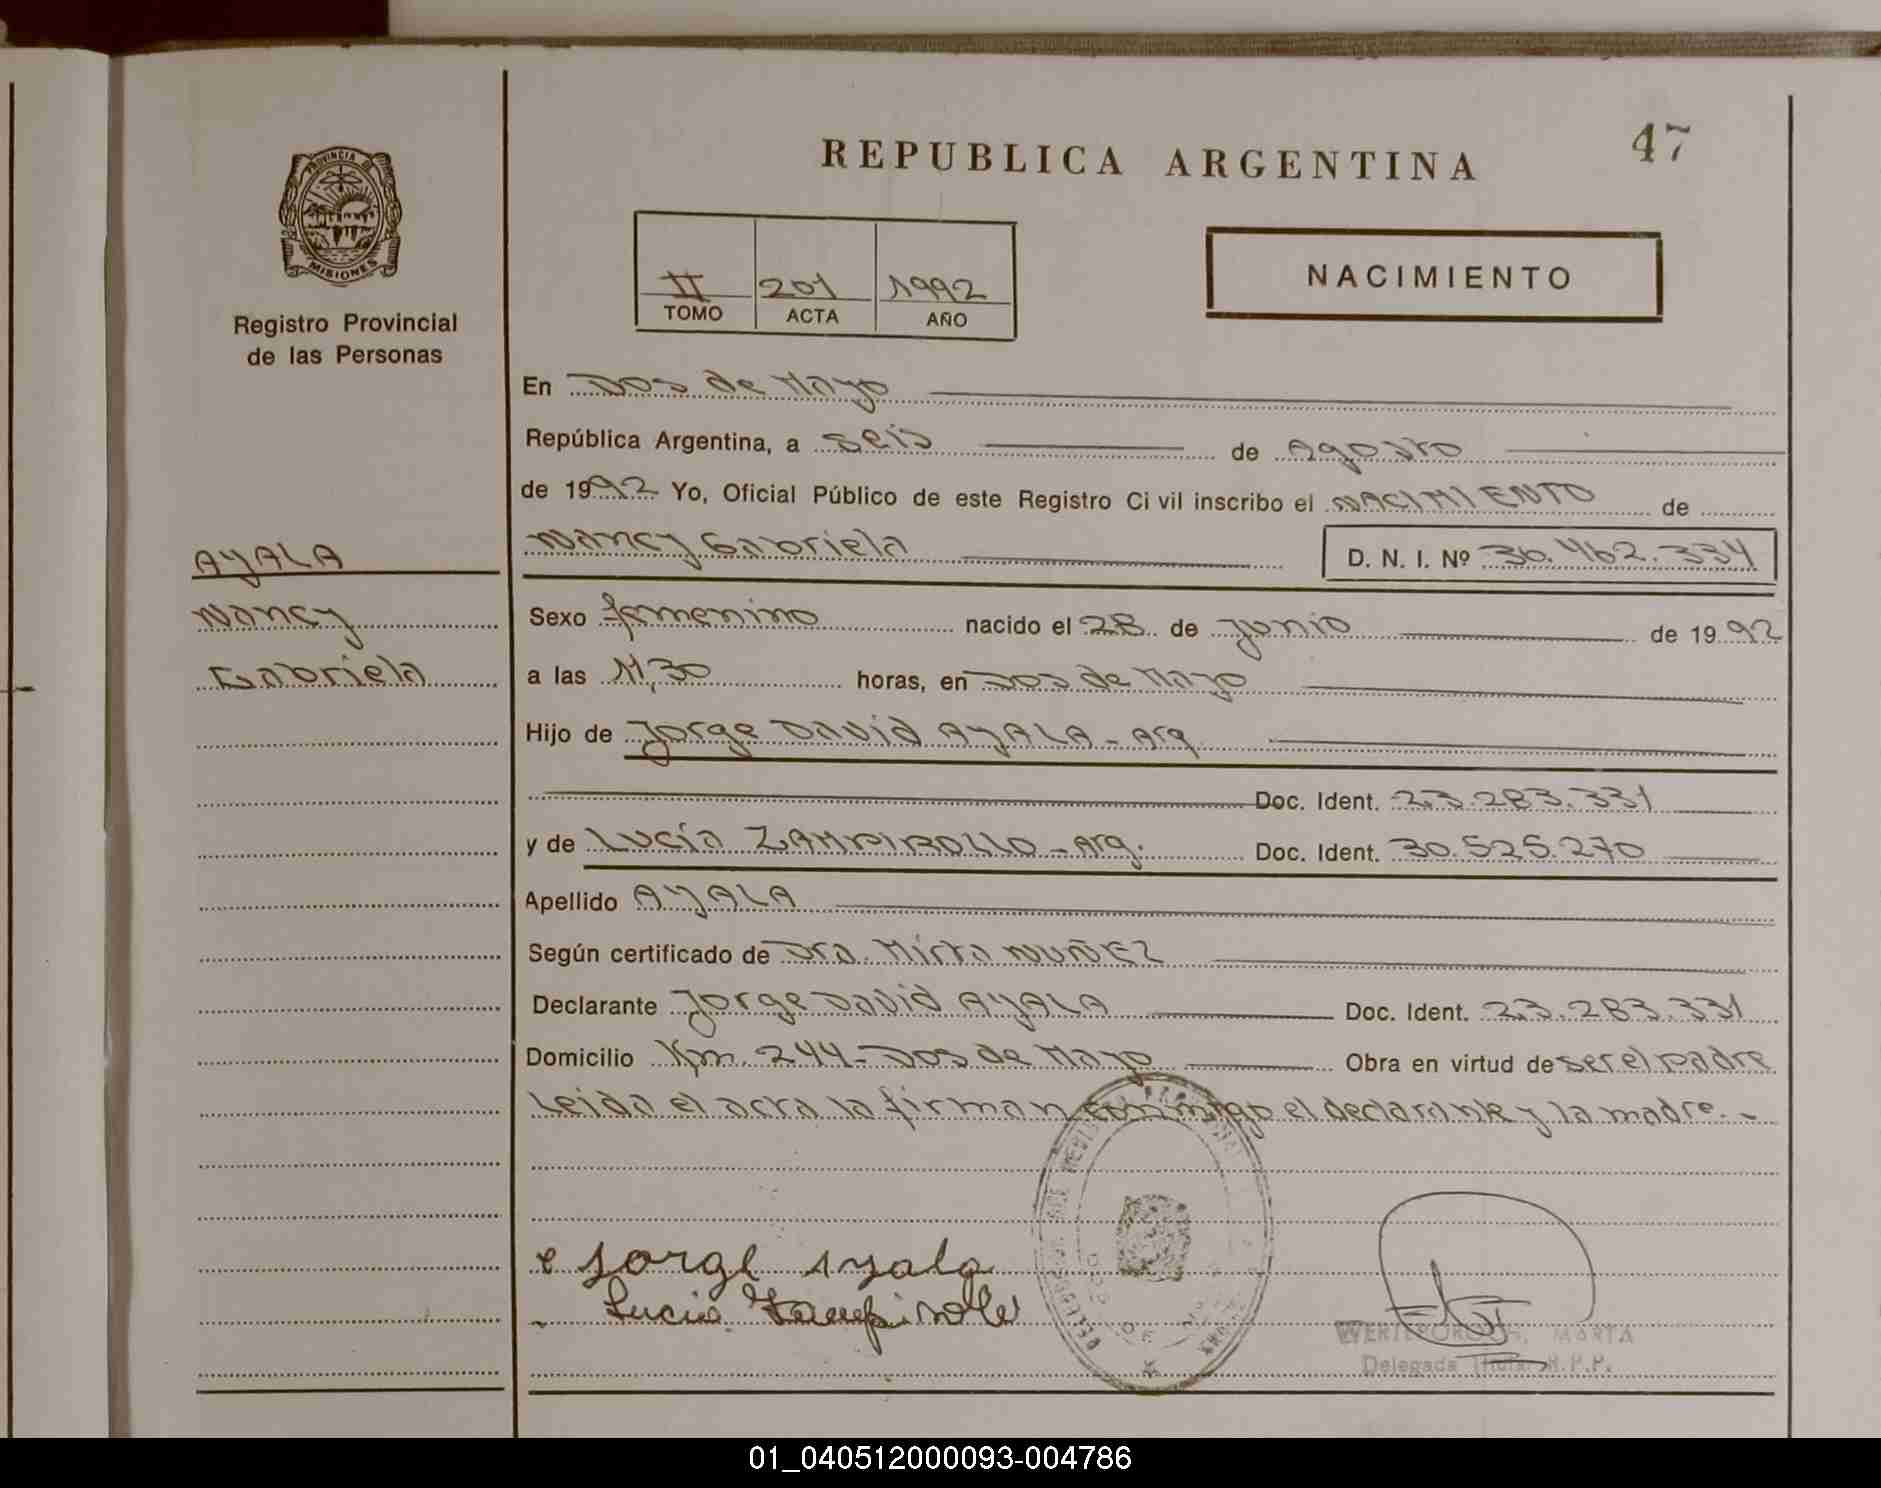 47
REPUBLICA ARGENTINA
PROVINCIA
MISIONES
Registro Provincial
de las Personas
II 201 1992
TOMO ACTA AÑO
NACIMIENTO
En Dos de Mayo
República Argentina, a seis de Agosto
de 1992 Yo, Oficial Público de este Registro Ci vil inscribo el NACIMIENTO de
AYALA
Nancy Gabriela D. N. I. Nº 36.462.334
Nancy
Sexo femenino nacido el 28 de Junio de 1992
Gabriela
a las 11,30 horas, en Dos de Mayo
Hijo de Jorge David AYALA - Arg.
Doc. Ident. 23.283.331
y de Lucía ZAMPIROLLO - Arg. Doc. Ident. 30.525.270
Apellido AYALA
Según certificado de Dra. Mirta NUÑEZ
Declarante Jorge David AYALA Doc. Ident. 23.283.331
Domicilio Km. 244 - Dos de Mayo Obra en virtud de ser el padre
Leida el acta la firman conmigo el declarante y la madre.-
Jorge Ayala
Lucia
MARTA
Delegada Titular R.P.P.
01_040512000093-004786